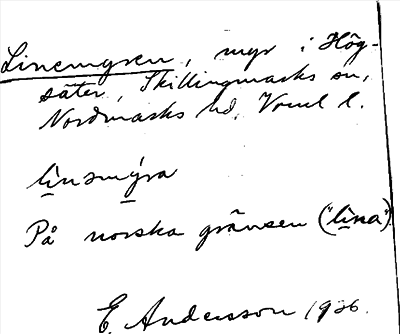 Linemyren, myr i Hög-
säter, Skillingmarks sn,
Nordmarks hd, Vrml l.
lìnəmý̱ra
På norska gränsen ("lìna")
E. Andersson 1926.